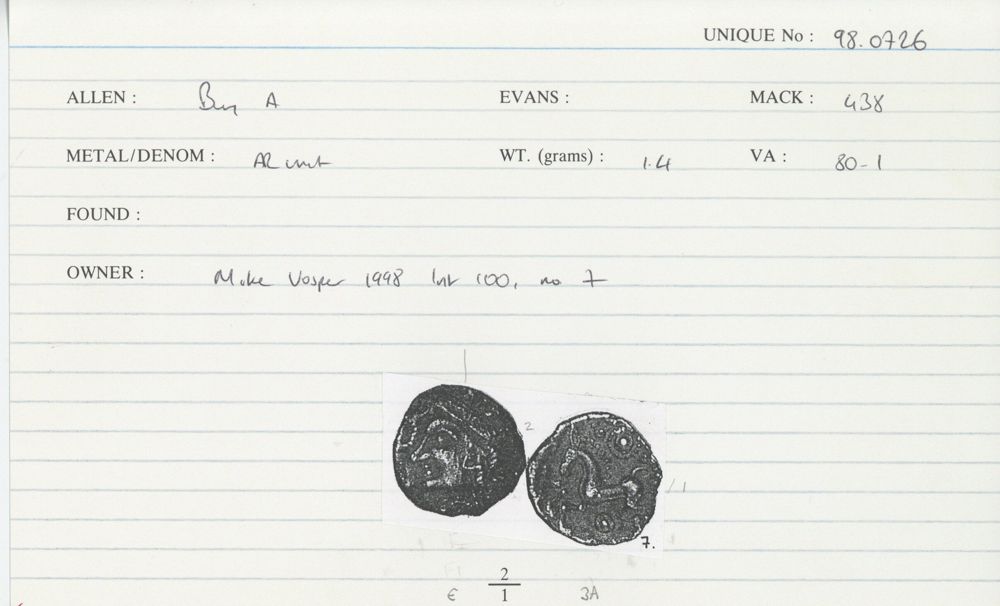 UNIQUE No : 98.0726
ALLEN : Bury A EVANS : MACK : 438
METAL/DENOM : AR unit WT. (grams) : 1.4 VA : 80-1
FOUND :
OWNER : Mike Vosper 1998 list 100, no 7
2
/ 1
7.
2
€ 1 3A